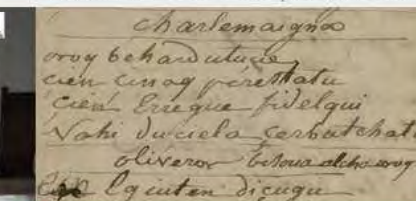 charlemaigna
orog behardutuçie
cien cinaq pérestatu
cien Erregue fidelqui
Nahi duciela cerbutchatu
oliveros besoua altcha orog
Eguiten diçugu